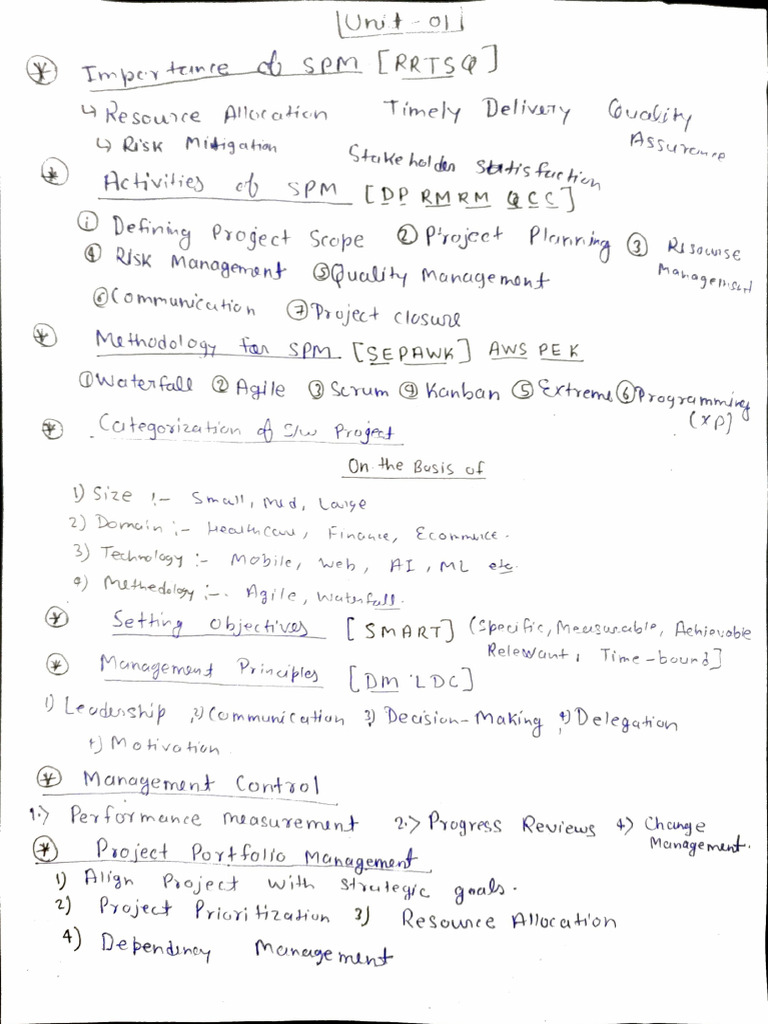 Unit - 01
Importance of SPM [RRTSQ]
↳ Resource Allocation Timely Delivery Quality Assurance
↳ Risk Mitigation Stakeholder Statisfaction
Activities of SPM [DP RM RM QCC]
① Defining Project Scope ② Project Planning ③ Resource Management
④ Risk Management ⑤ Quality Management
⑥ Communication ⑦ Project closure
Methodology for SPM [SEPAWK] AWS PEK
① Waterfall ② Agile ③ Scrum ④ Kanban ⑤ Extreme ⑥ Programming (XP]
Categorization of S/w Project
On the Basis of
1) Size :- Small, Med, Large
2) Domain :- Healthcare, Finance, Ecommerce.
3) Technology :- Mobile, Web, AI, ML etc.
4) Methedology :-. Agile, Waterfall.
Setting Objectives [SMART] (Specific, Measurable, Achievable Relevant, Time-bound]
Management Principles [DM LDC]
1) Leadership 2) Communication 3) Decision-Making 4) Delegation
4) Motivation.
Management Control
1.> Performance measurement 2.> Progress Reviews 4> Change Management.
Project Portfolio Management
1) Align Project with strategic goals.
2) Project Prioritization 3) Resource Allocation
4) Dependency Management